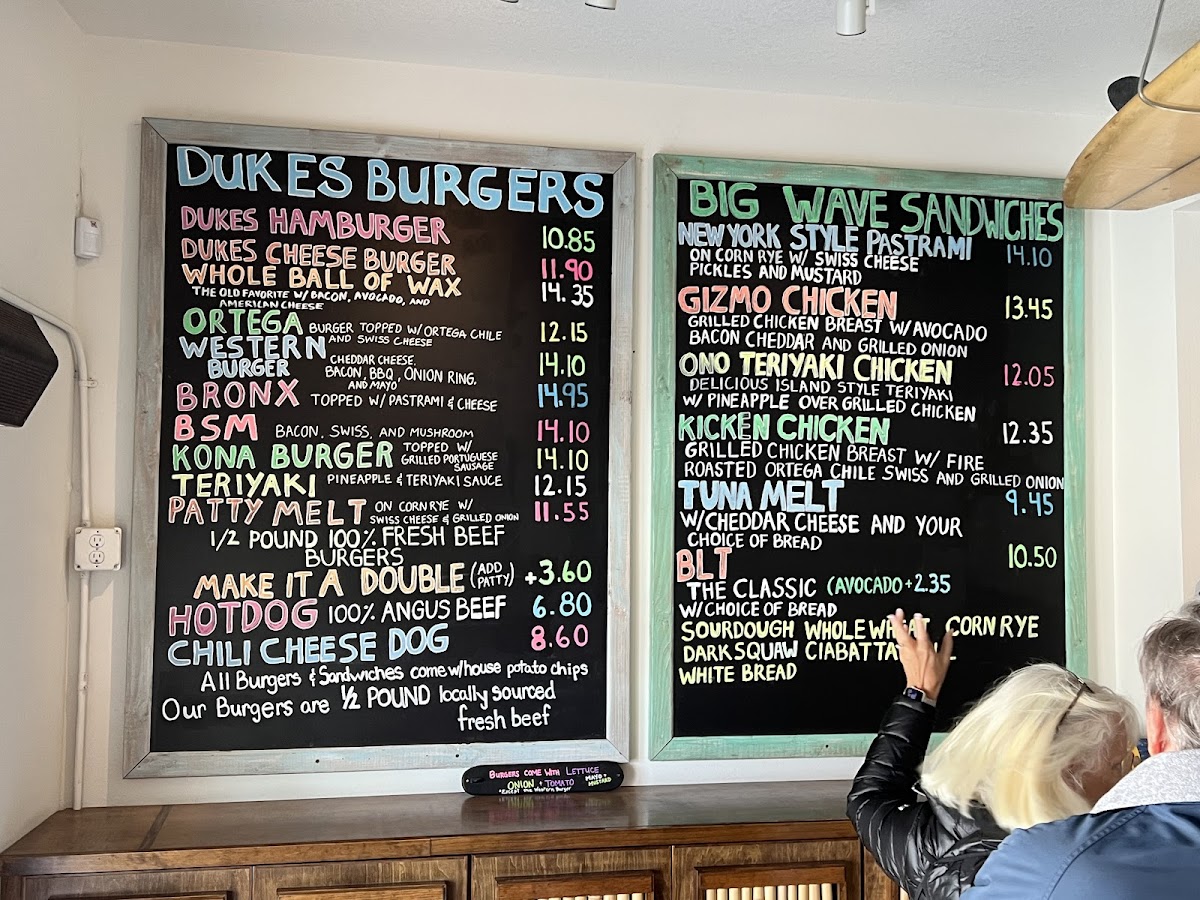 DUKES BURGERS
DUKES HAMBURGER 10.85
DUKES CHEESE BURGER 11.90
WHOLE BALL OF WAX 14.35
THE OLD FAVORITE W/ BACON, AVOCADO, AND
AMERICAN CHEESE
ORTEGA BURGER TOPPED W/ ORTEGA CHILE 12.15
AND SWISS CHEESE
WESTERN CHEDDAR CHEESE, 14.10
BURGER BACON, BBQ, ONION RING,
AND MAYO
BRONX TOPPED W/ PASTRAMI & CHEESE 14.95
BSM BACON, SWISS, AND MUSHROOM 14.10
KONA BURGER TOPPED W/ 14.10
GRILLED PORTUGUESE
SAUSAGE
TERIYAKI PINEAPPLE & TERIYAKI SAUCE 12.15
PATTY MELT ON CORN RYE W/ 11.55
SWISS CHEESE & GRILLED ONION
1/2 POUND 100% FRESH BEEF
BURGERS
MAKE IT A DOUBLE (ADD PATTY) +3.60
HOTDOG 100% ANGUS BEEF 6.80
CHILI CHEESE DOG 8.60
All Burgers & Sandwiches come w/house potato chips
Our Burgers are 1/2 POUND locally sourced
fresh beef
BURGERS COME WITH LETTUCE
ONION + TOMATO MAYO + MUSTARD
*Except the Western Burger
BIG WAVE SANDWICHES
NEW YORK STYLE PASTRAMI 14.10
ON CORN RYE W/ SWISS CHEESE
PICKLES AND MUSTARD
GIZMO CHICKEN 13.45
GRILLED CHICKEN BREAST W/AVOCADO
BACON CHEDDAR AND GRILLED ONION
ONO TERIYAKI CHICKEN 12.05
DELICIOUS ISLAND STYLE TERIYAKI
W/ PINEAPPLE OVER GRILLED CHICKEN
KICKEN CHICKEN 12.35
GRILLED CHICKEN BREAST W/ FIRE
ROASTED ORTEGA CHILE SWISS AND GRILLED ONION
TUNA MELT 9.45
W/CHEDDAR CHEESE AND YOUR
CHOICE OF BREAD
BLT 10.50
THE CLASSIC (AVOCADO +2.35
W/CHOICE OF BREAD
SOURDOUGH WHOLE WHEAT CORN RYE
DARK SQUAW CIABATTA
WHITE BREAD